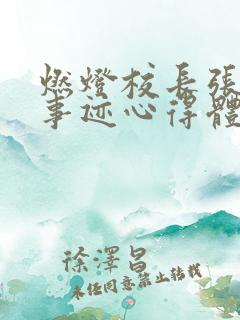 燃燈校長張
事迹心得體
徐澤昌
未经同意禁止转载